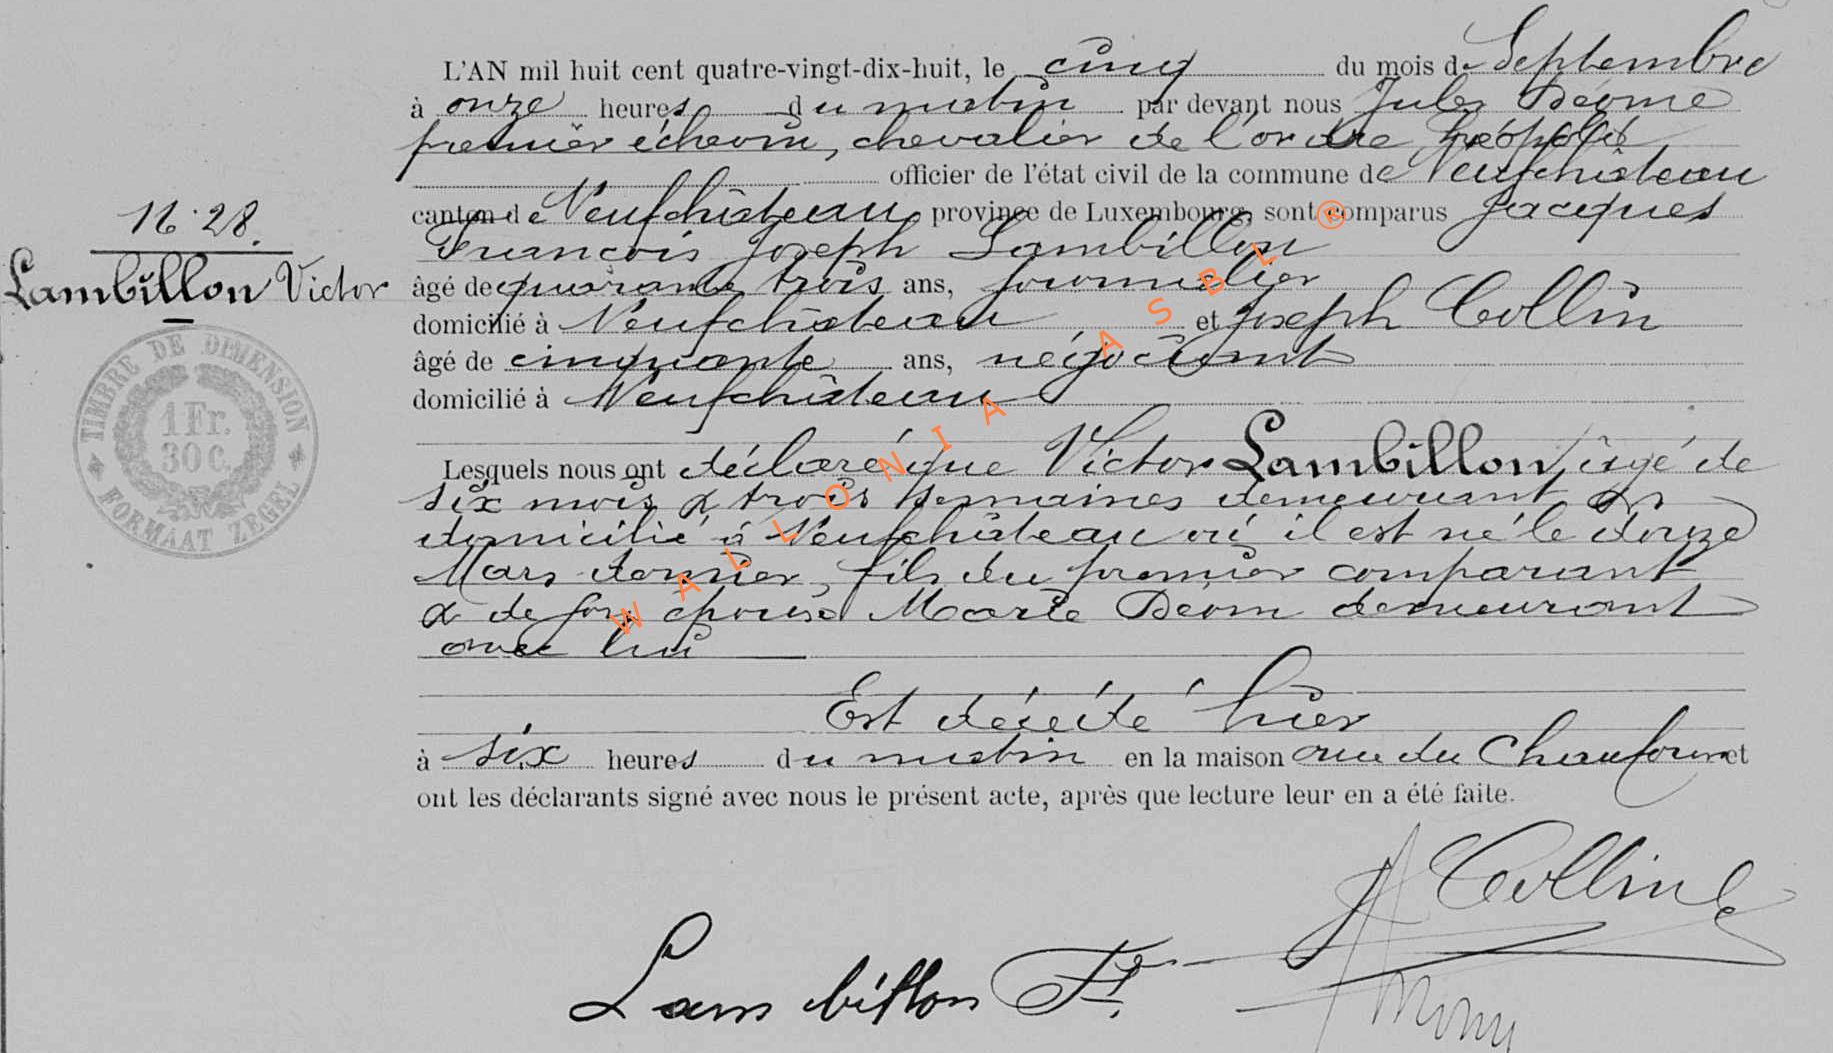 L'AN mil huit cent quatre-vingt-dix-huit, le cinq du mois de Septembre
à onze heures du matin par devant nous Jules Déome
premier échevin, chevalier de l'ordre Léopold
officier de l'état civil de la commune de Neufchâteau
canton de Neufchâteau province de Luxembourg, sont comparus Jacques
François Joseph Lambillon
âgé de quarante trois ans, journalier
domicilié à Neufchâteau et Joseph Collin
âgé de cinquante ans, négociant
domicilié à Neufchâteau
Lesquels nous ont déclaré que Victor Lambillon, âgé de
six mois & trois semaines demeurant &
domicilié à Neufchâteau où il est né le douze
Mars dernier, fils du premier comparant
& de son épouse Marie Déom demeurant
avec lui
Est décédé hier
à six heures du matin en la maison rue du Chaufour et
ont les déclarants signé avec nous le présent acte, après que lecture leur en a été faite.
N. 28.
Lambillon Victor
TIMBRE DE DIMENSION
1 Fr.
30 C.
FORMAAT ZEGEL
WALLONIA ASBL ®
Collin
Lambillon Fs.